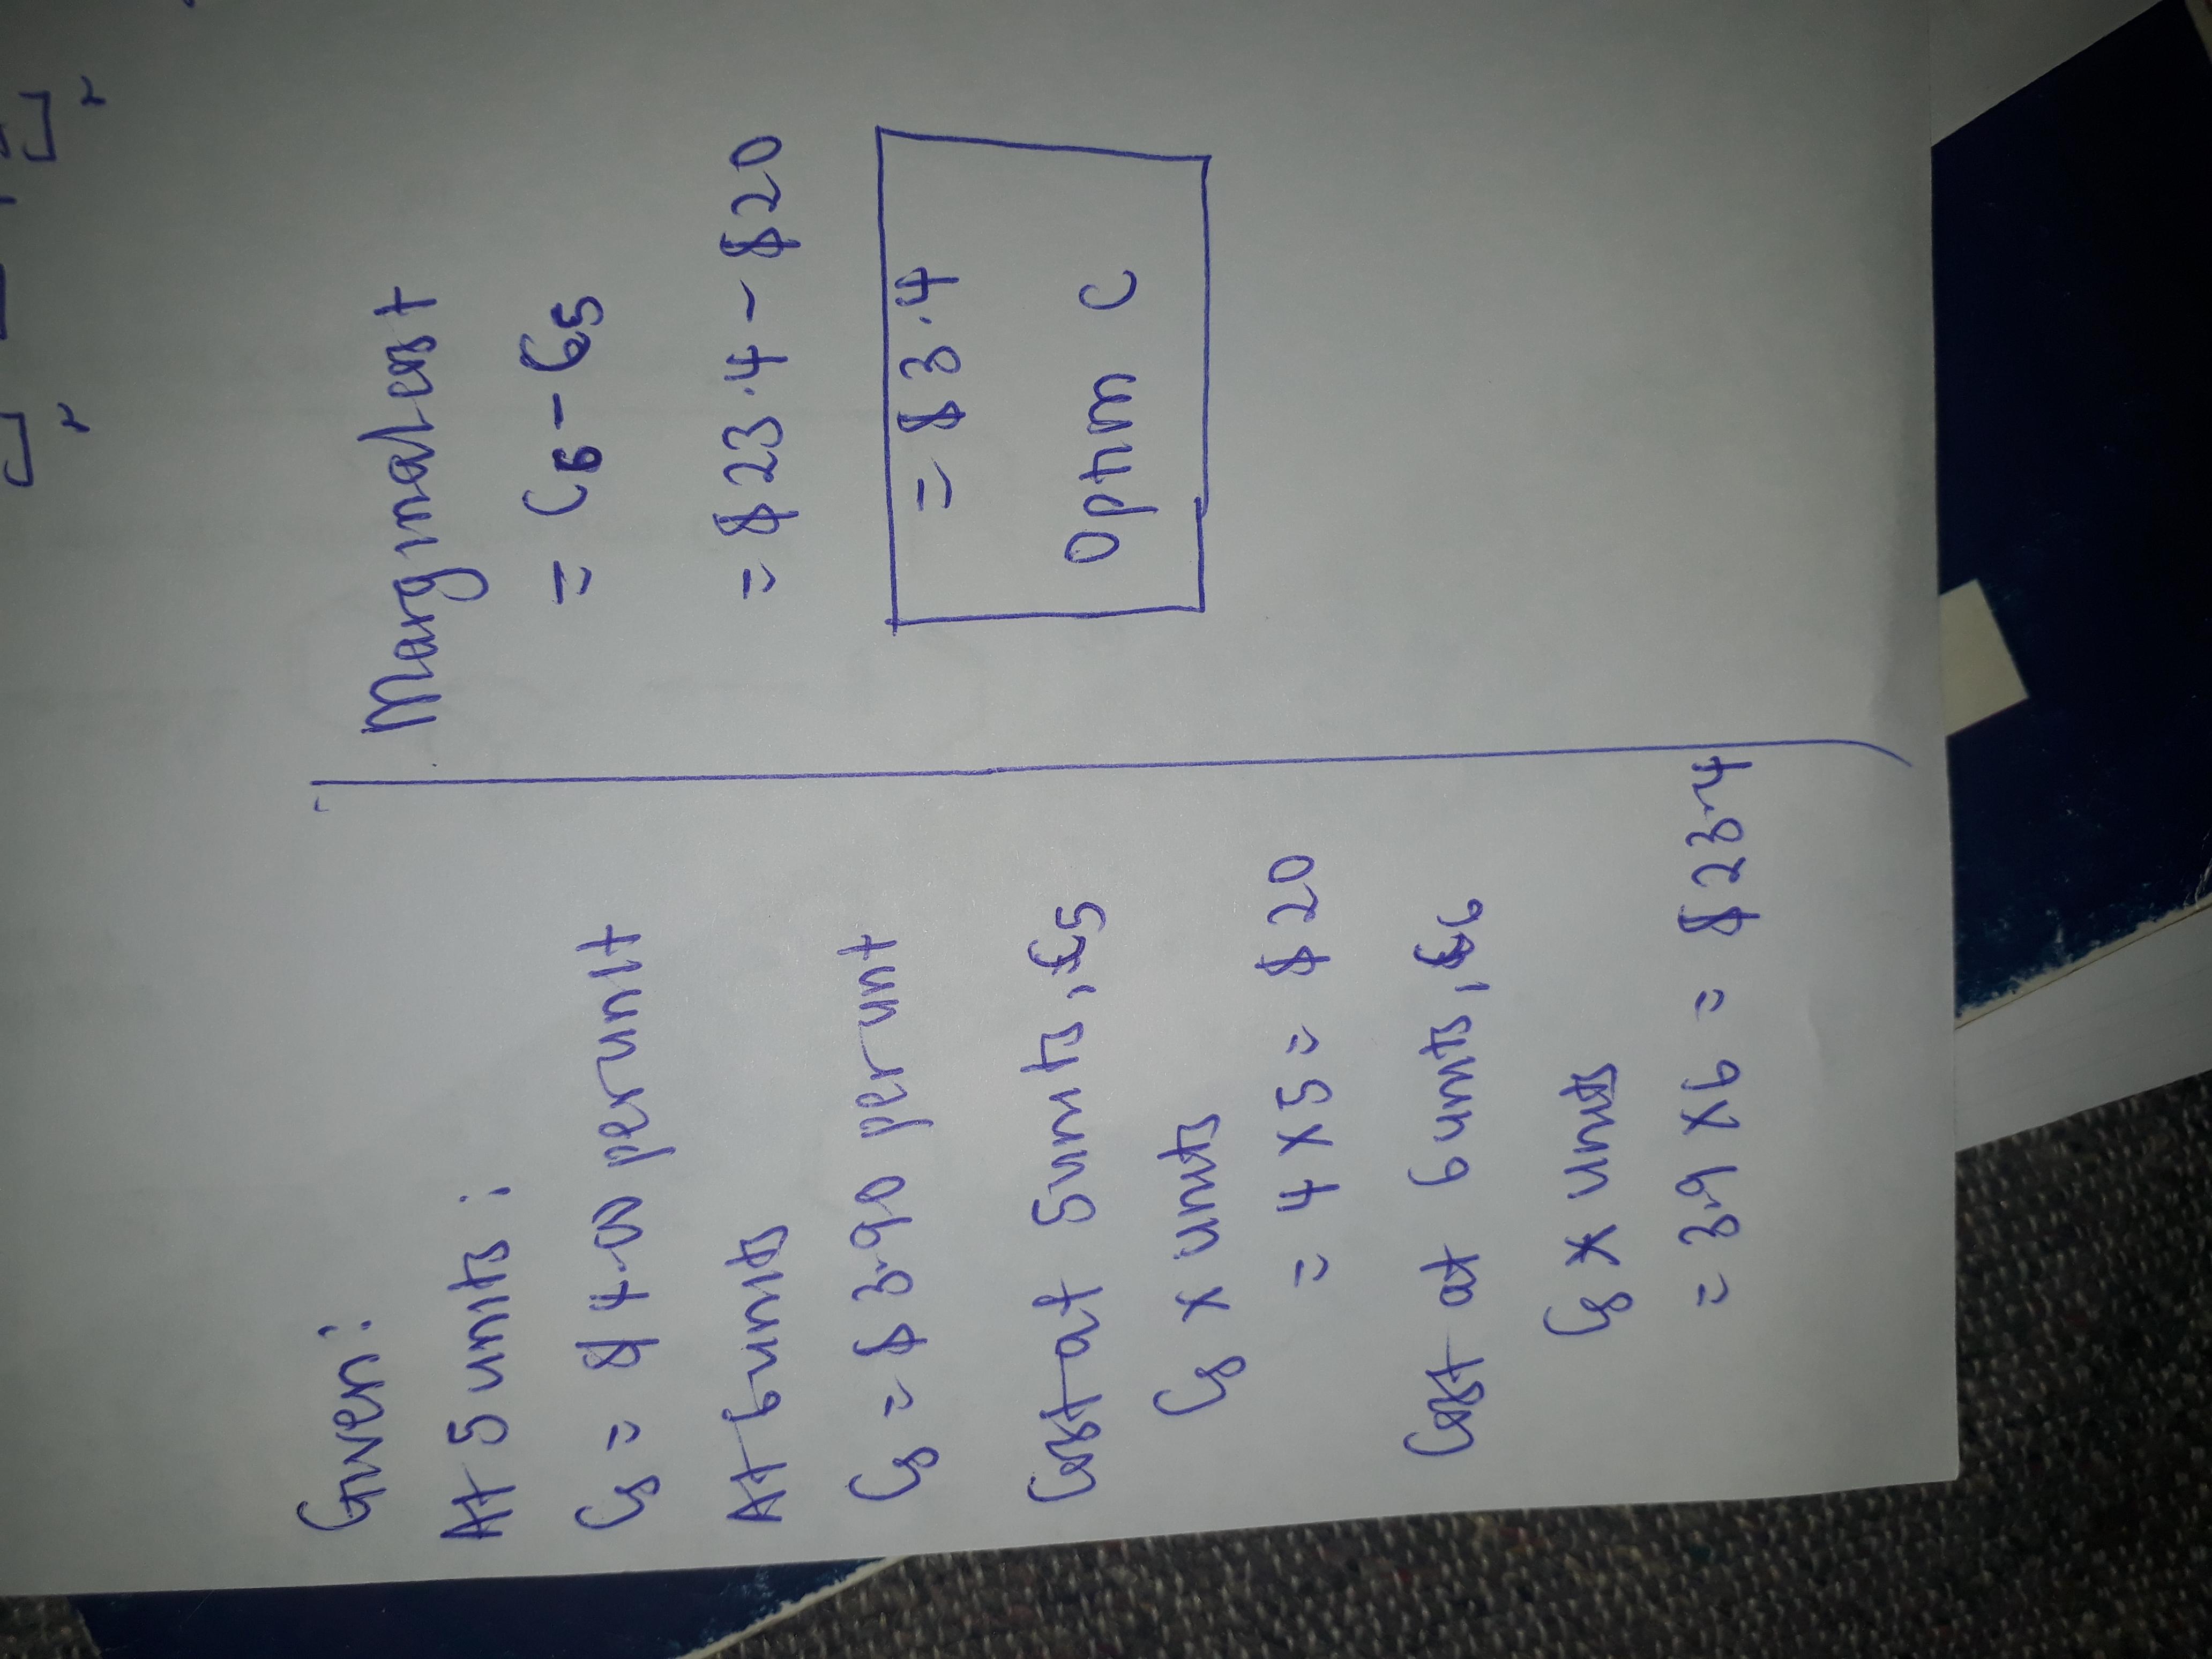 Given:
At 5 units:
C5 = $4.00 per unit
At 6 units
C5 = $3.90 per unit
Cost at 5 units, C5
C5 x units
= 4 x 5 = $20
Cost at 6 units, C6
C5 x units
= 3.9 x 6 = $23.4
Marginal cost
= C6 - C5
= $23.4 - $20
= $3.4
Option C